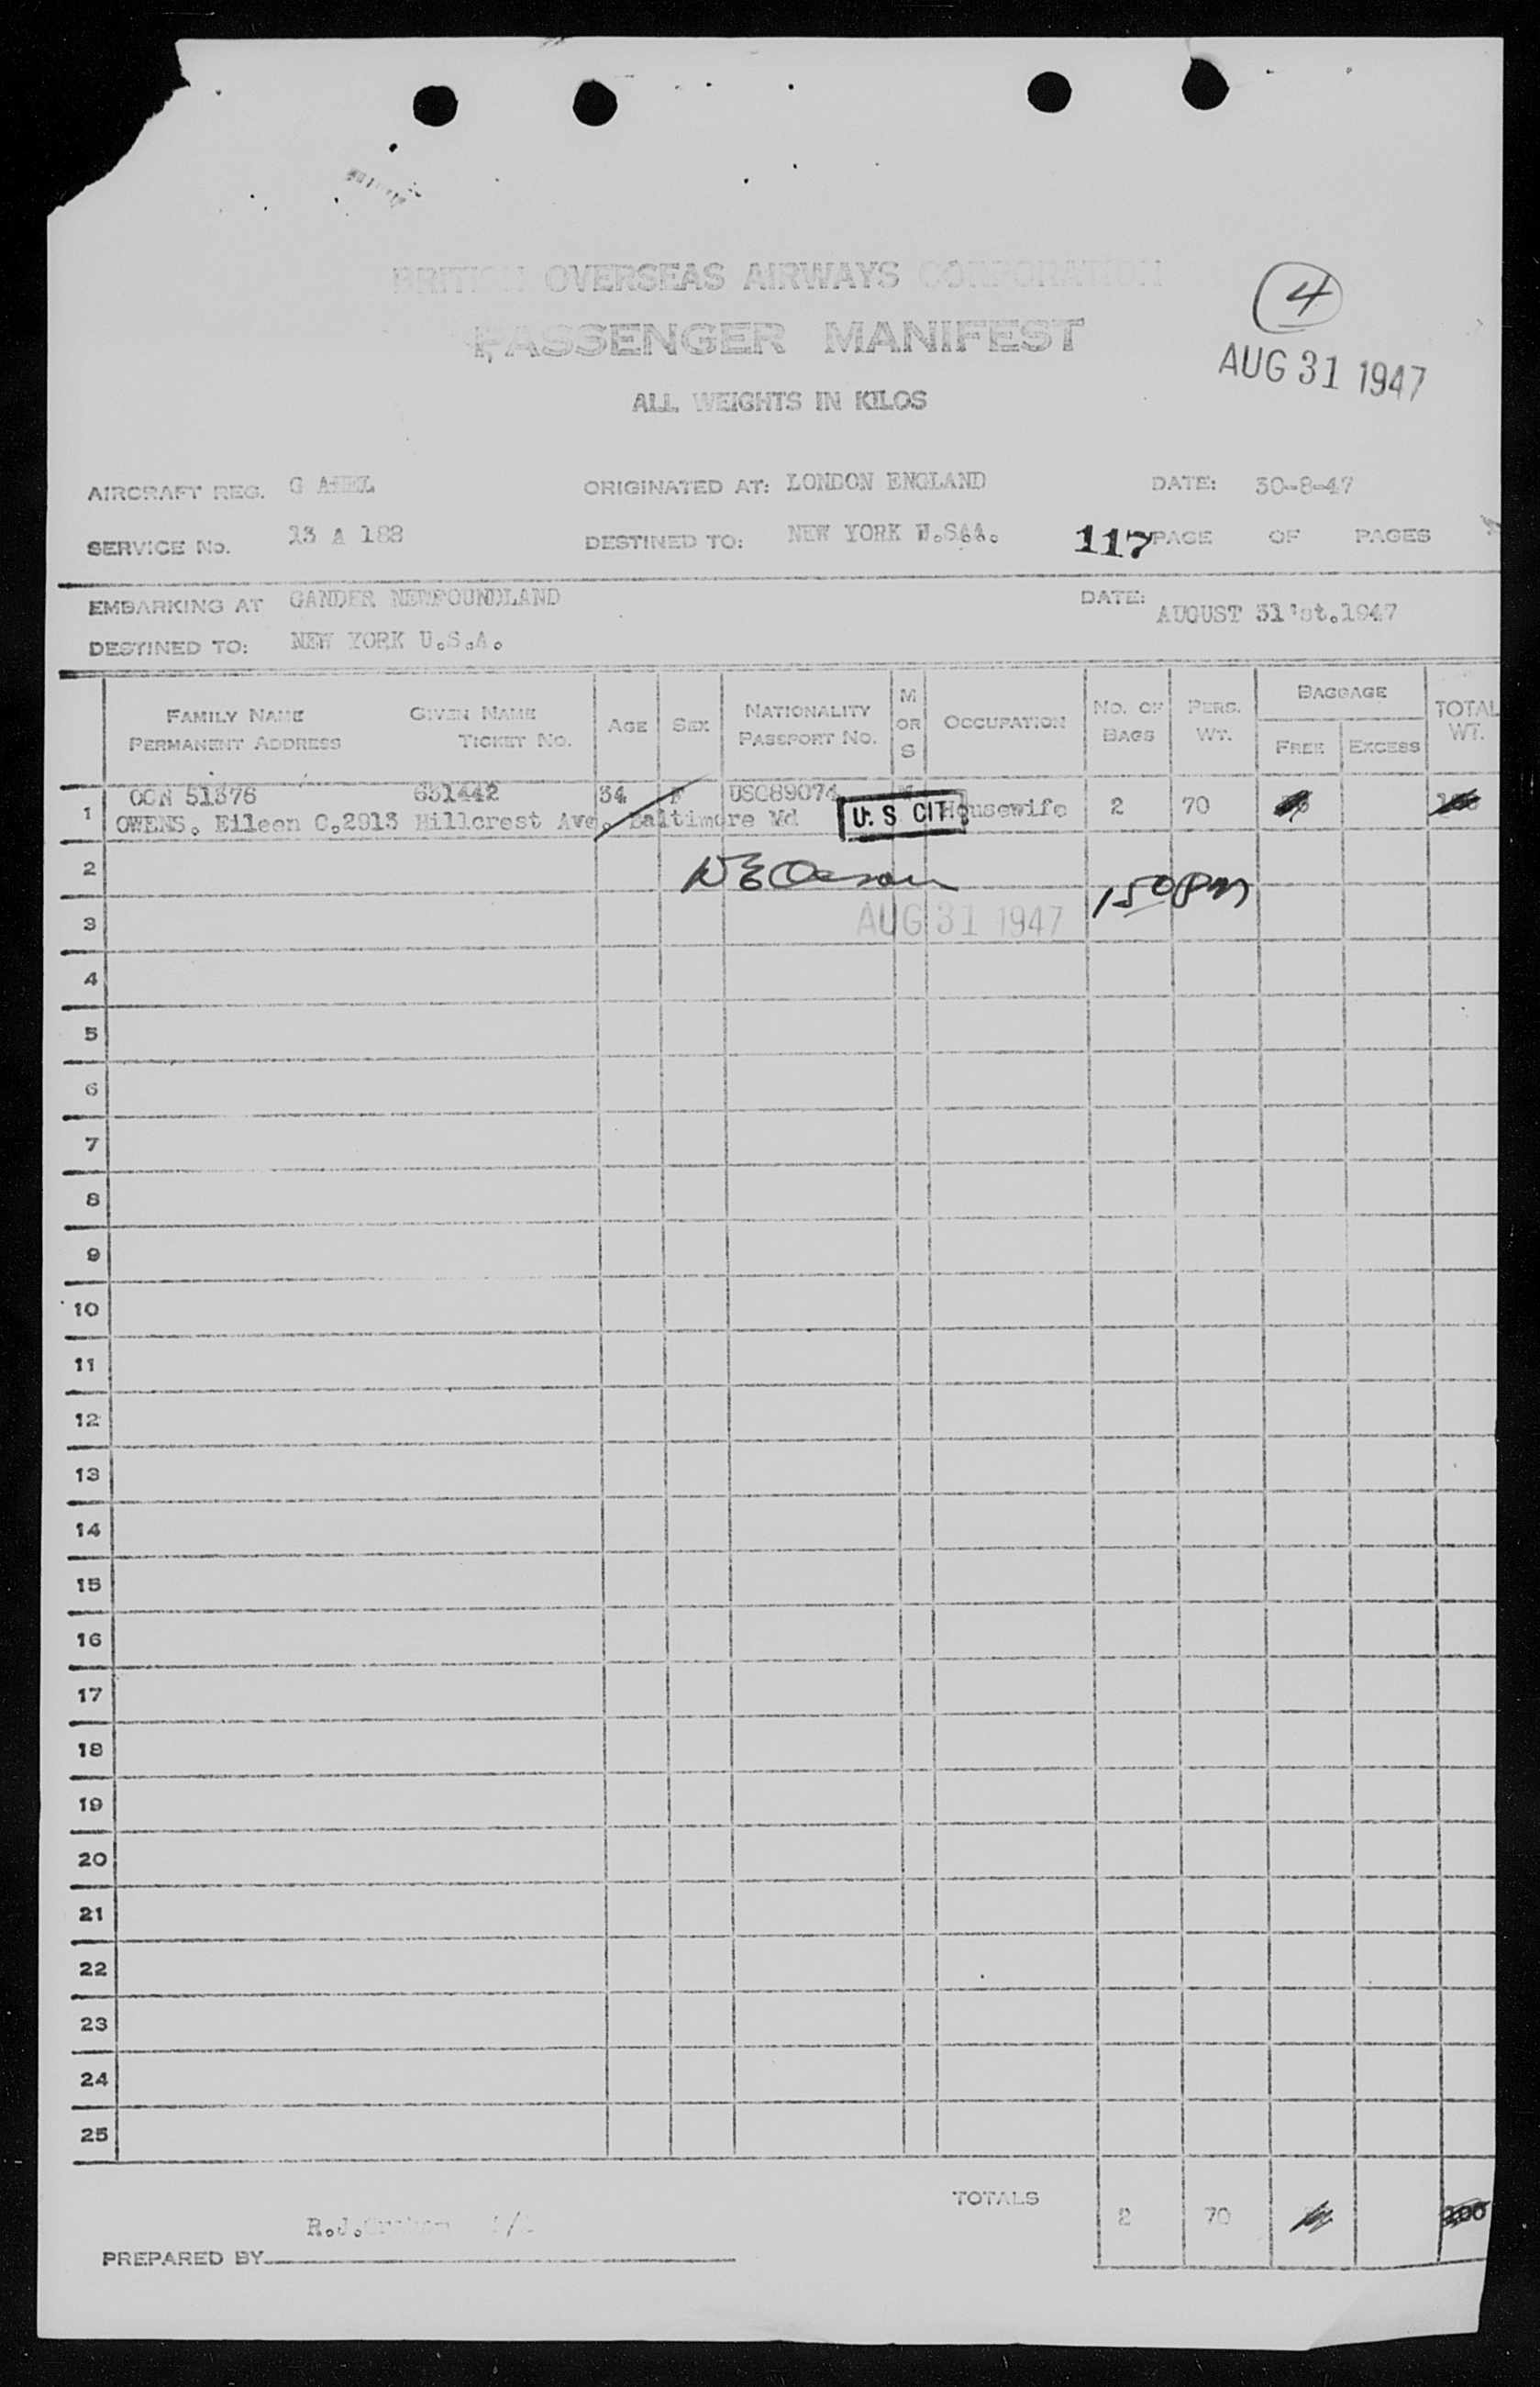 BRITISH OVERSEAS AIRWAYS CORPORATION
PASSENGER MANIFEST
4
AUG 31 1947
ALL WEIGHTS IN KILOS
AIRCRAFT REG. G ORIGINATED AT: LONDON ENGLAND DATE: 30-8-47
SERVICE No. 13 A 188 DESTINED TO: NEW YORK U.S.A. 117 PAGE OF PAGES
EMBARKING AT GANDER NEWFOUNDLAND DATE: AUGUST 31'st.1947
DESTINED TO: NEW YORK U.S.A.
FAMILY NAME GIVEN NAME AGE SEX NATIONALITY M OR S OCCUPATION NO. OF BAGS PERS. WT. BAGGAGE TOTAL WT.
PERMANENT ADDRESS TICKET NO. PASSPORT NO. FREE EXCESS
1 CON 51376 631442 34 F USC89074
OWENS. Eileen C.2913 Hillcrest Ave. Baltimore Md U. S CIT Housewife 2 70
2
150 PM
3 AUG 31 1947
4
5
6
7
8
9
10
11
12
13
14
15
16
17
18
19
20
21
22
23
24
25
TOTALS 2 70 100
R.J.
PREPARED BY